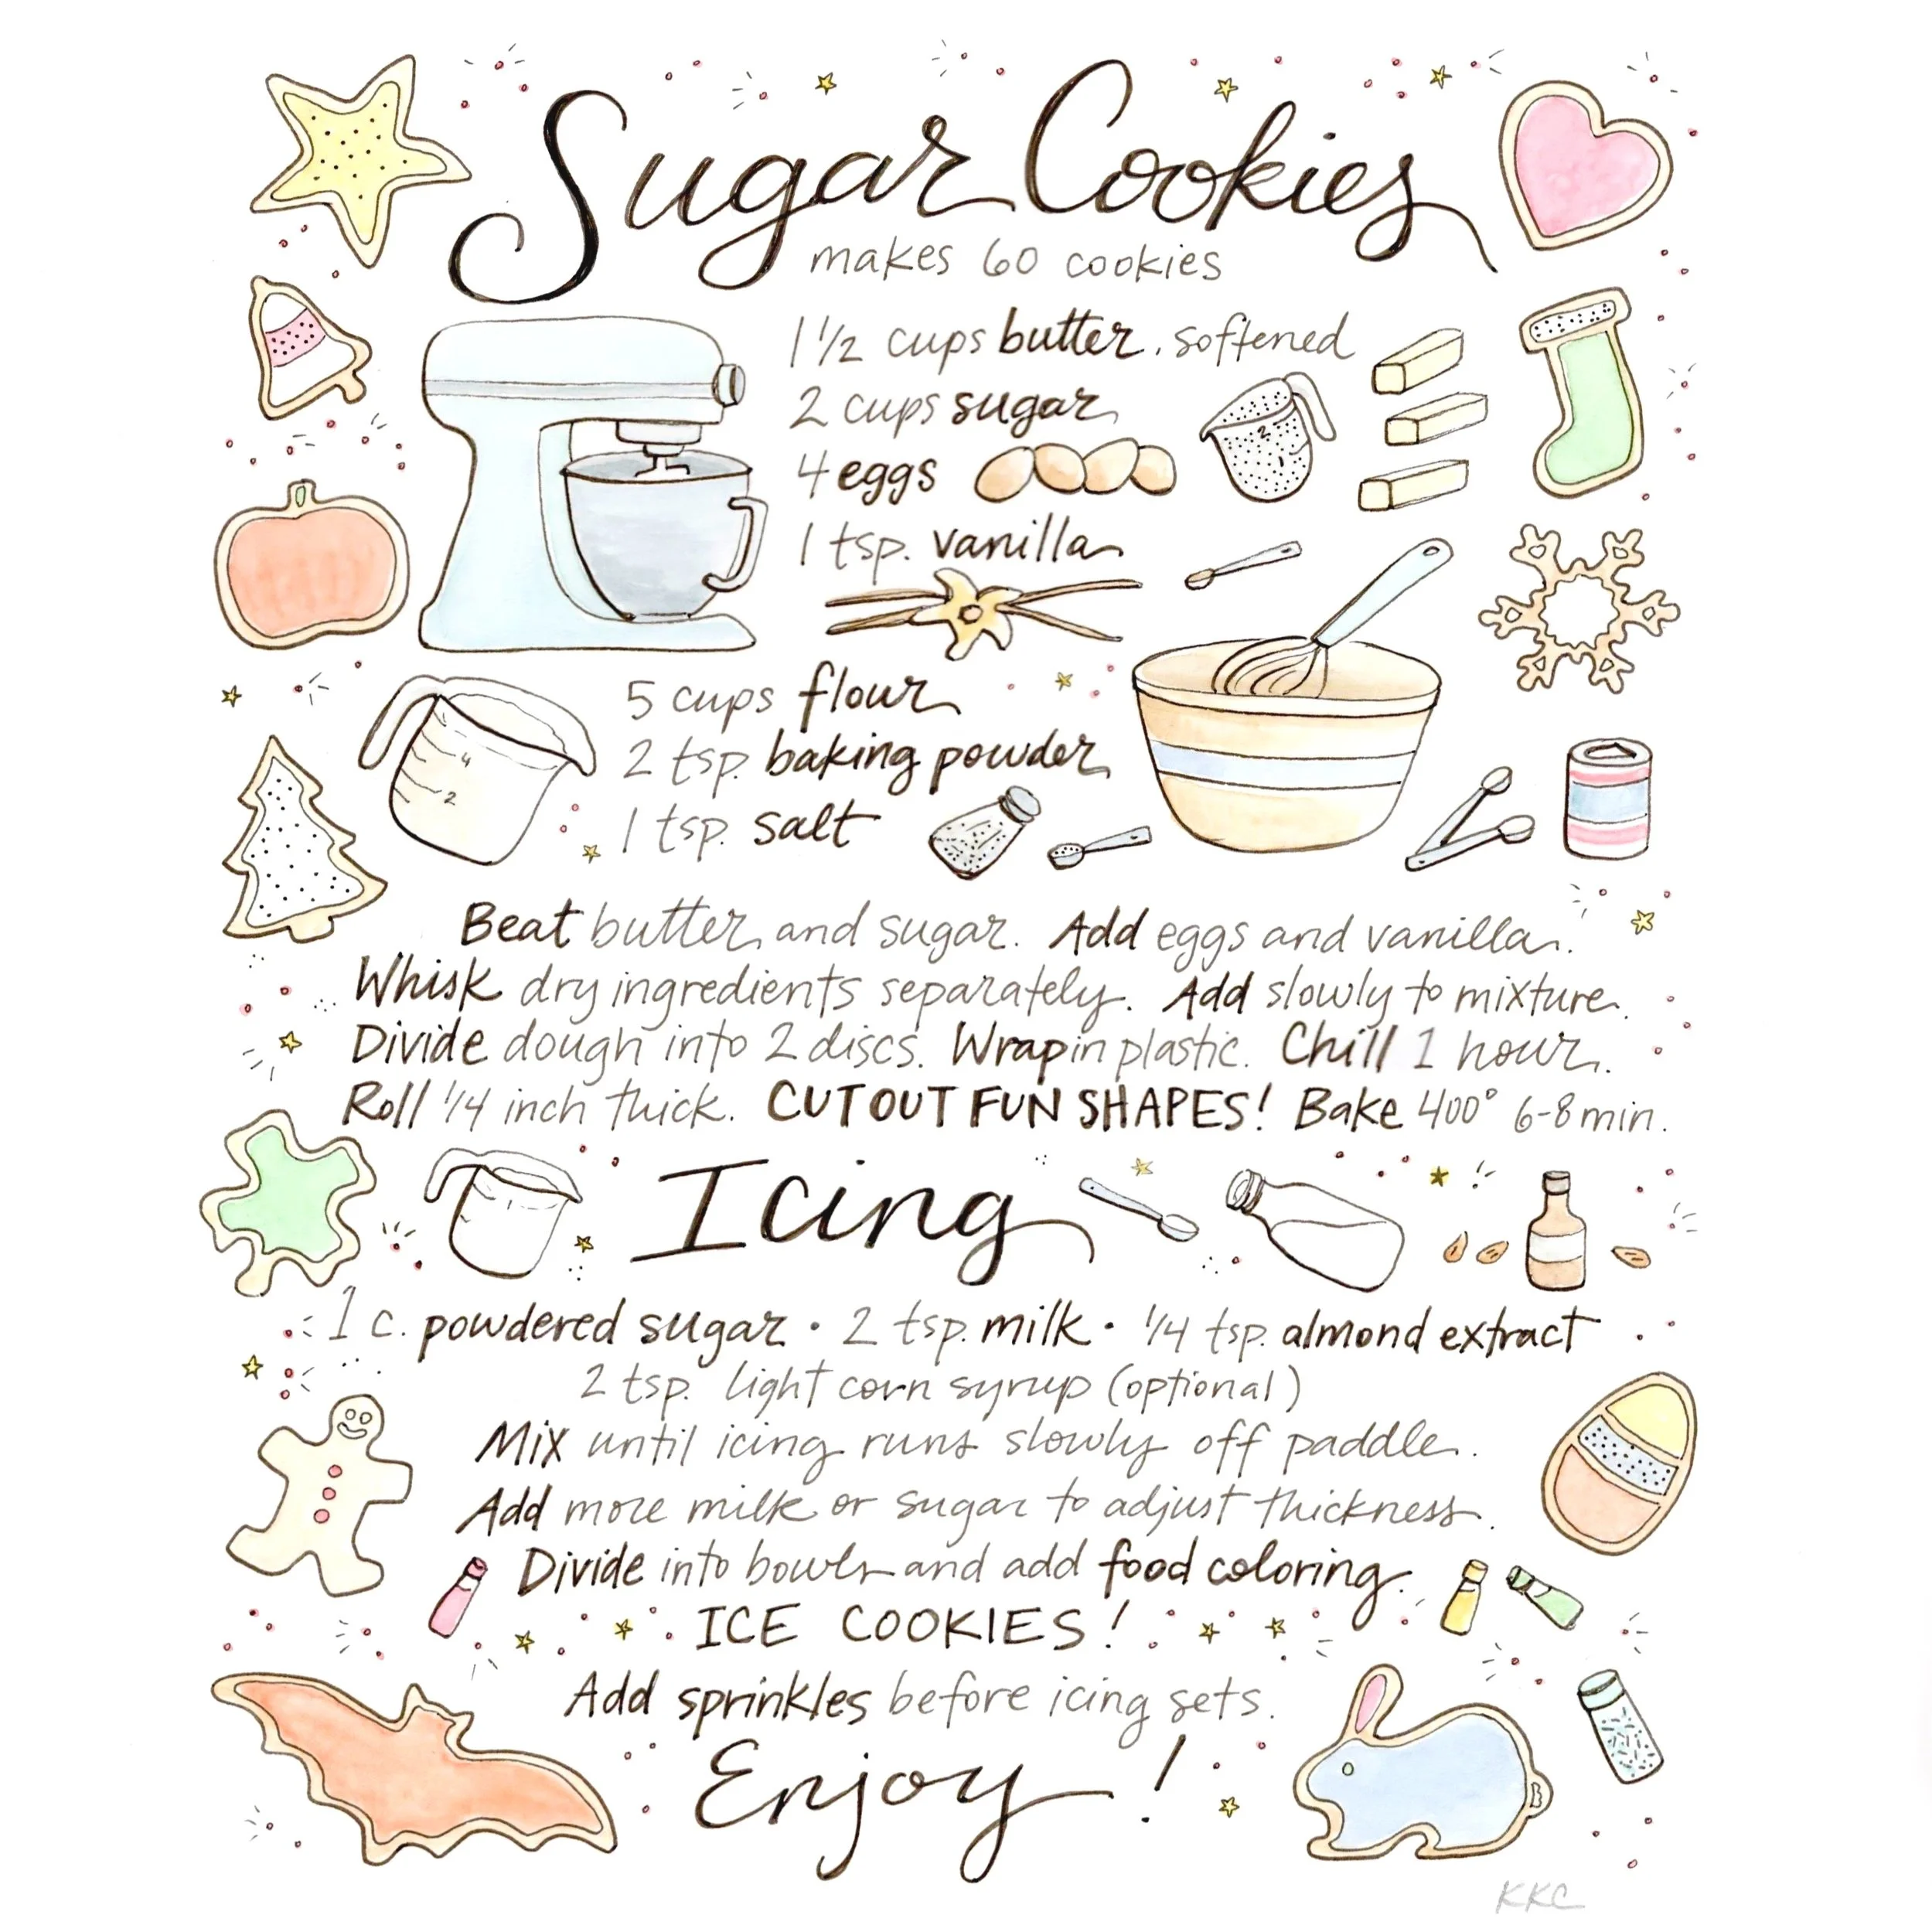 Sugar Cookies
makes 60 cookies
1 1/2 cups butter, softened
2 cups sugar
4 eggs
1 tsp. vanilla
5 cups flour
2 tsp. baking powder
1 tsp. salt
2
1
4
2
Beat butter and sugar. Add eggs and vanilla.
Whisk dry ingredients separately. Add slowly to mixture.
Divide dough into 2 discs. Wrap in plastic. Chill 1 hour.
Roll 1/4 inch thick. CUT OUT FUN SHAPES! Bake 400° 6-8 min.
Icing
1 c. powdered sugar • 2 tsp. milk • 1/4 tsp. almond extract
2 tsp. light corn syrup (optional)
Mix until icing runs slowly off paddle.
Add more milk or sugar to adjust thickness.
Divide into bowls and add food coloring.
ICE COOKIES!
Add sprinkles before icing sets.
Enjoy!
KKC